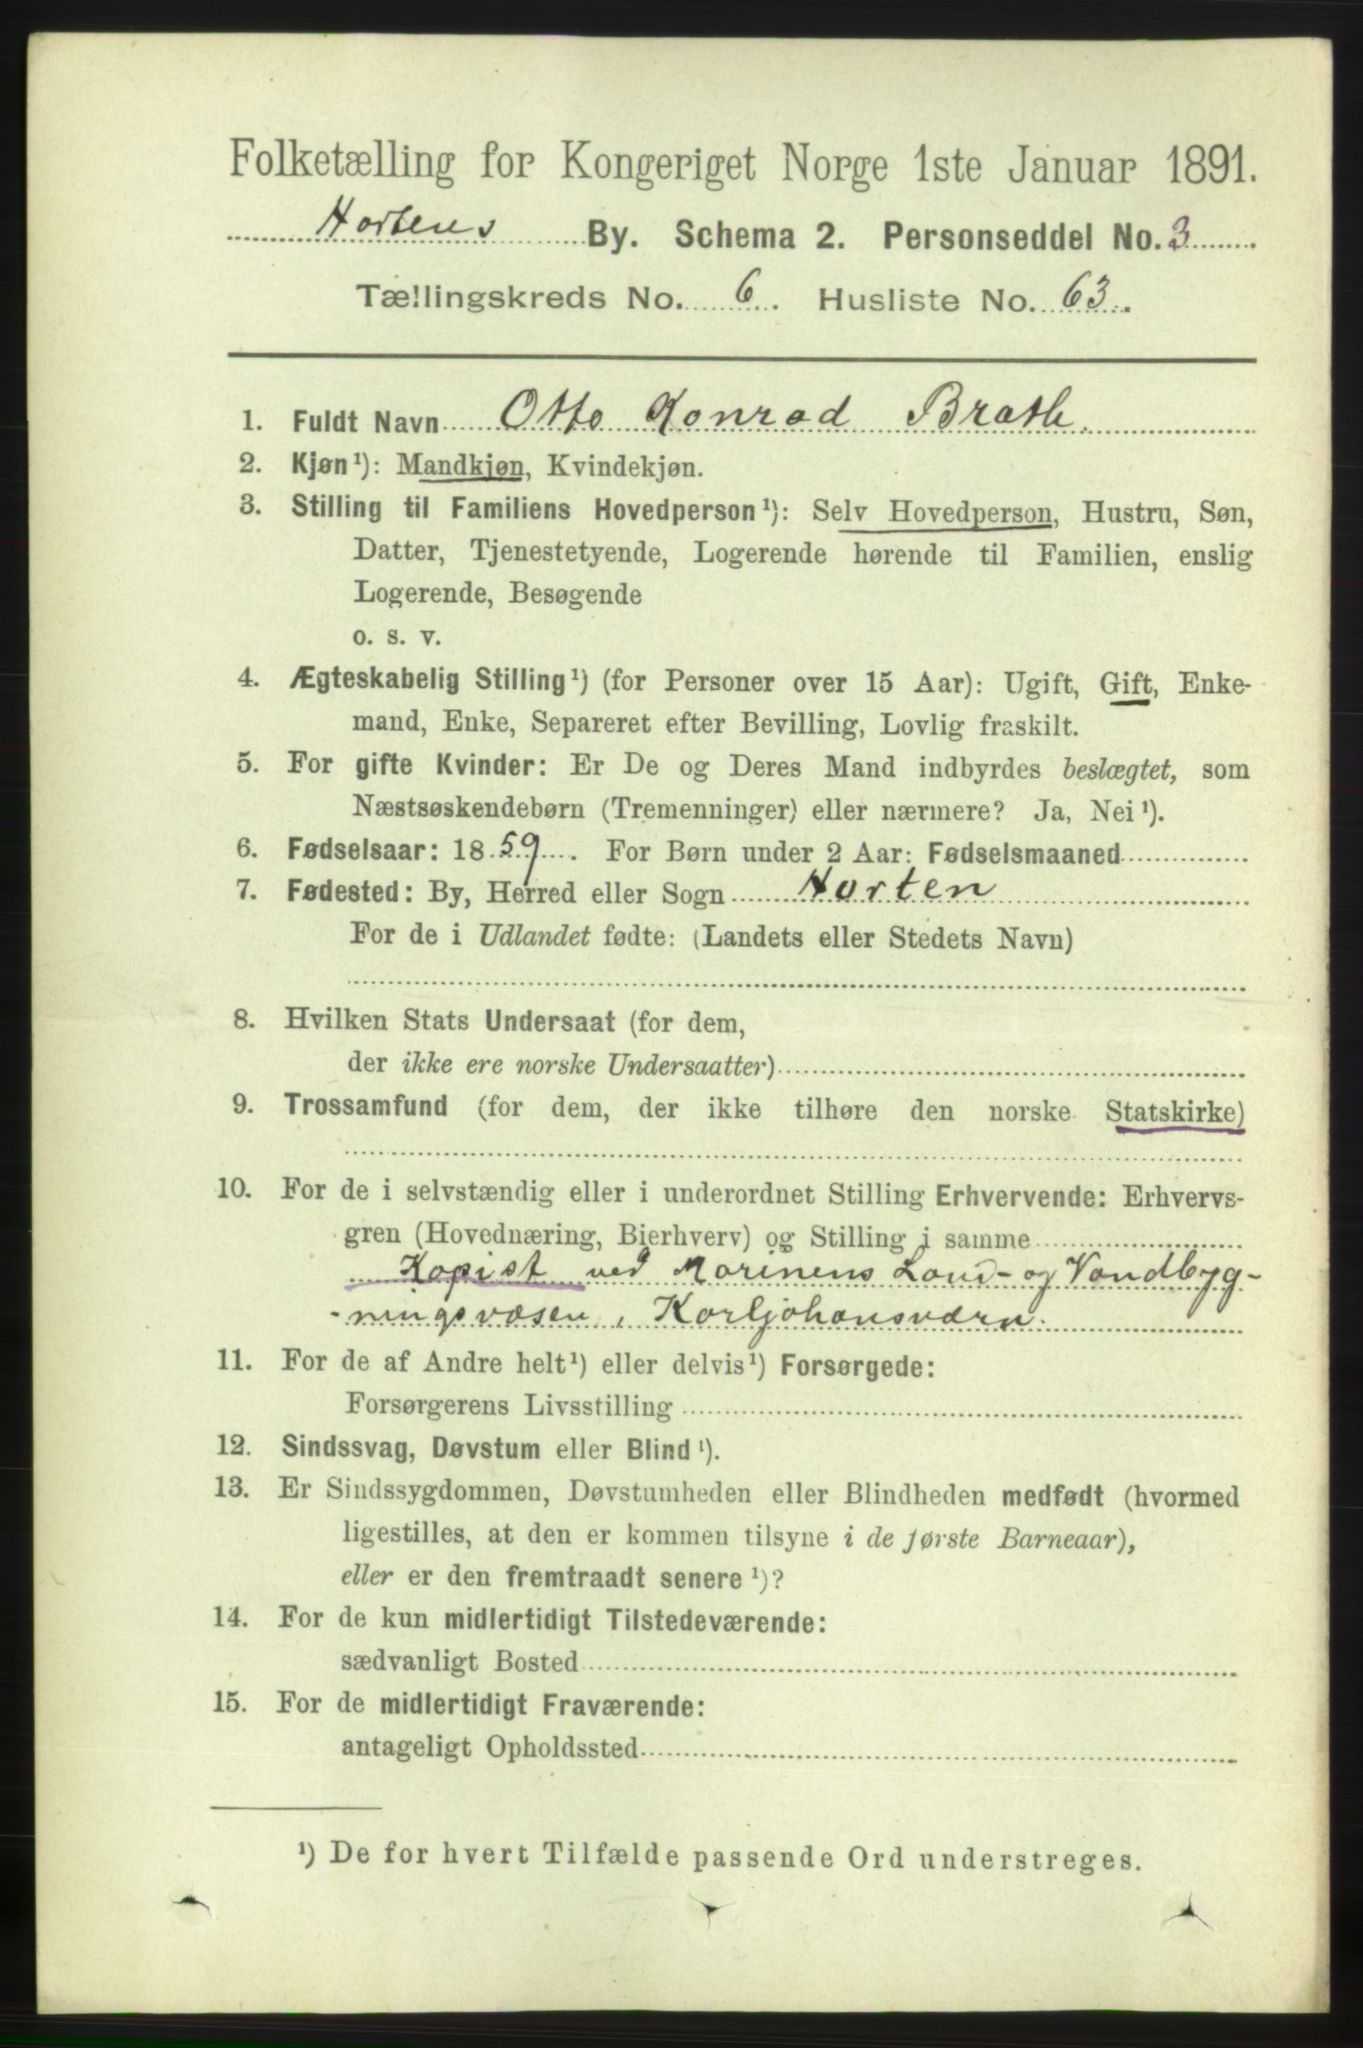 Folketælling for Kongeriget Norge 1ste Januar 1891.
Hortens By. Schema 2. Personseddel No. 3
Tællingskreds No. 6. Husliste No. 63.
1. Fuldt Navn Otto Konrad Brath.
2. Kjøn¹): Mandkjøn, Kvindekjøn.
3. Stilling til Familiens Hovedperson¹): Selv Hovedperson, Hustru, Søn,
Datter, Tjenestetyende, Logerende hørende til Familien, enslig
Logerende, Besøgende
o. s. v.
4. Ægteskabelig Stilling¹) (for Personer over 15 Aar): Ugift, Gift, Enke-
mand, Enke, Separeret efter Bevilling, Lovlig fraskilt.
5. For gifte Kvinder: Er De og Deres Mand indbyrdes beslægtet, som
Næstsøskendebørn (Tremenninger) eller nærmere? Ja, Nei¹).
6. Fødselsaar: 1859. For Børn under 2 Aar: Fødselsmaaned
7. Fødested: By, Herred eller Sogn Horten
For de i Udlandet fødte: (Landets eller Stedets Navn)
8. Hvilken Stats Undersaat (for dem,
der ikke ere norske Undersaatter)
9. Trossamfund (for dem, der ikke tilhøre den norske Statskirke)
10. For de i selvstændig eller i underordnet Stilling Erhvervende: Erhvervs-
gren (Hovednæring, Bierhverv) og Stilling i samme
Kopist ved Marinens Land- og Vandbyg-
-ningsvæsen, Karljohansværn.
11. For de af Andre helt¹) eller delvis¹) Forsørgede:
Forsørgerens Livsstilling
12. Sindssvag, Døvstum eller Blind¹).
13. Er Sindssygdommen, Døvstumheden eller Blindheden medfødt (hvormed
ligestilles, at den er kommen tilsyne i de første Barneaar),
eller er den fremtraadt senere¹)?
14. For de kun midlertidigt Tilstedeværende:
sædvanligt Bosted
15. For de midlertidigt Fraværende:
antageligt Opholdssted
¹) De for hvert Tilfælde passende Ord understreges.